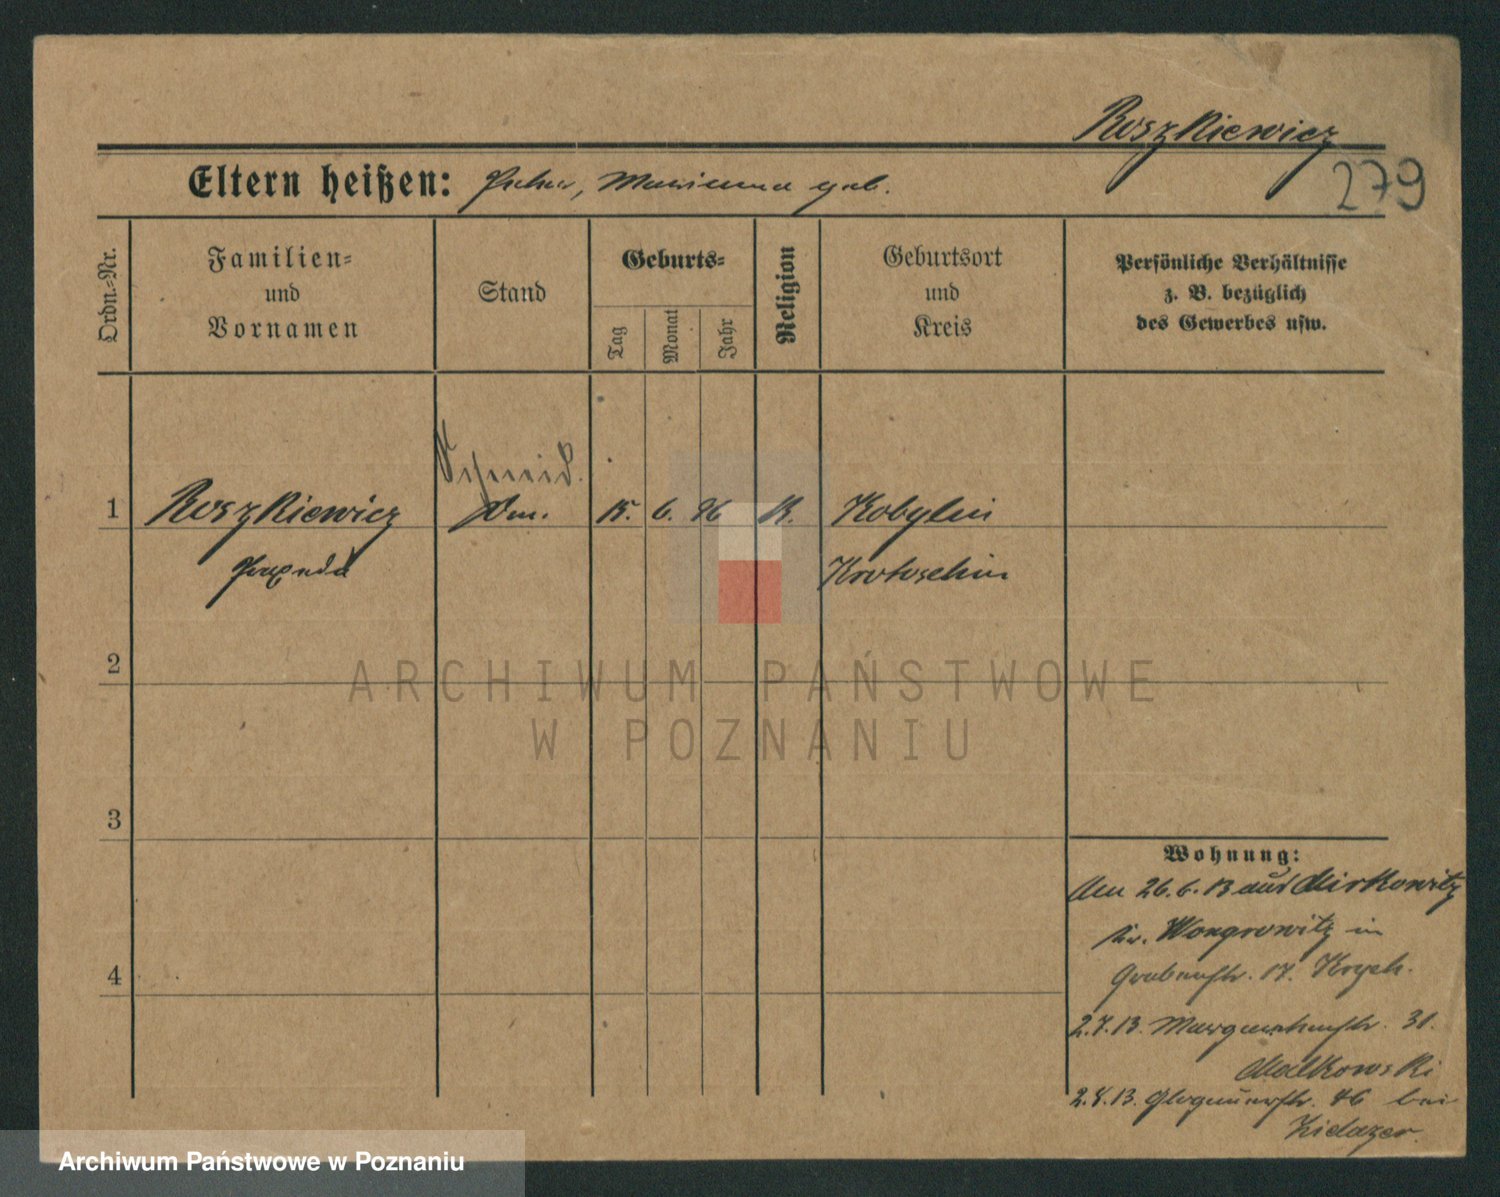 Roszkiewicz
279
Eltern heißen: Peter, Marianna geb.
Ordn.-Nr.
Familien-
und
Vornamen
Stand
Geburts-
Tag
Monat
Jahr
Religion
Geburtsort
und
Kreis
Persönliche Verhältnisse
z. B. bezüglich
des Gewerbes usw.
Schneid.
1 Roszkiewicz 15. 6. 96 K. Kobylin
Praxeda Krotoschin
2
3
4
Wohnung:
Am 26.6.13 aus Mirkowitz
Kr. Wongrowitz in
Grabenstr. 17. Krych.
2.7.13. Margaretenstr. 31.
Malkowski
2.8.13. Glogauerstr. 76 bei
ARCHIWUM PAŃSTWOWE
W POZNANIU
Archiwum Państwowe w Poznaniu